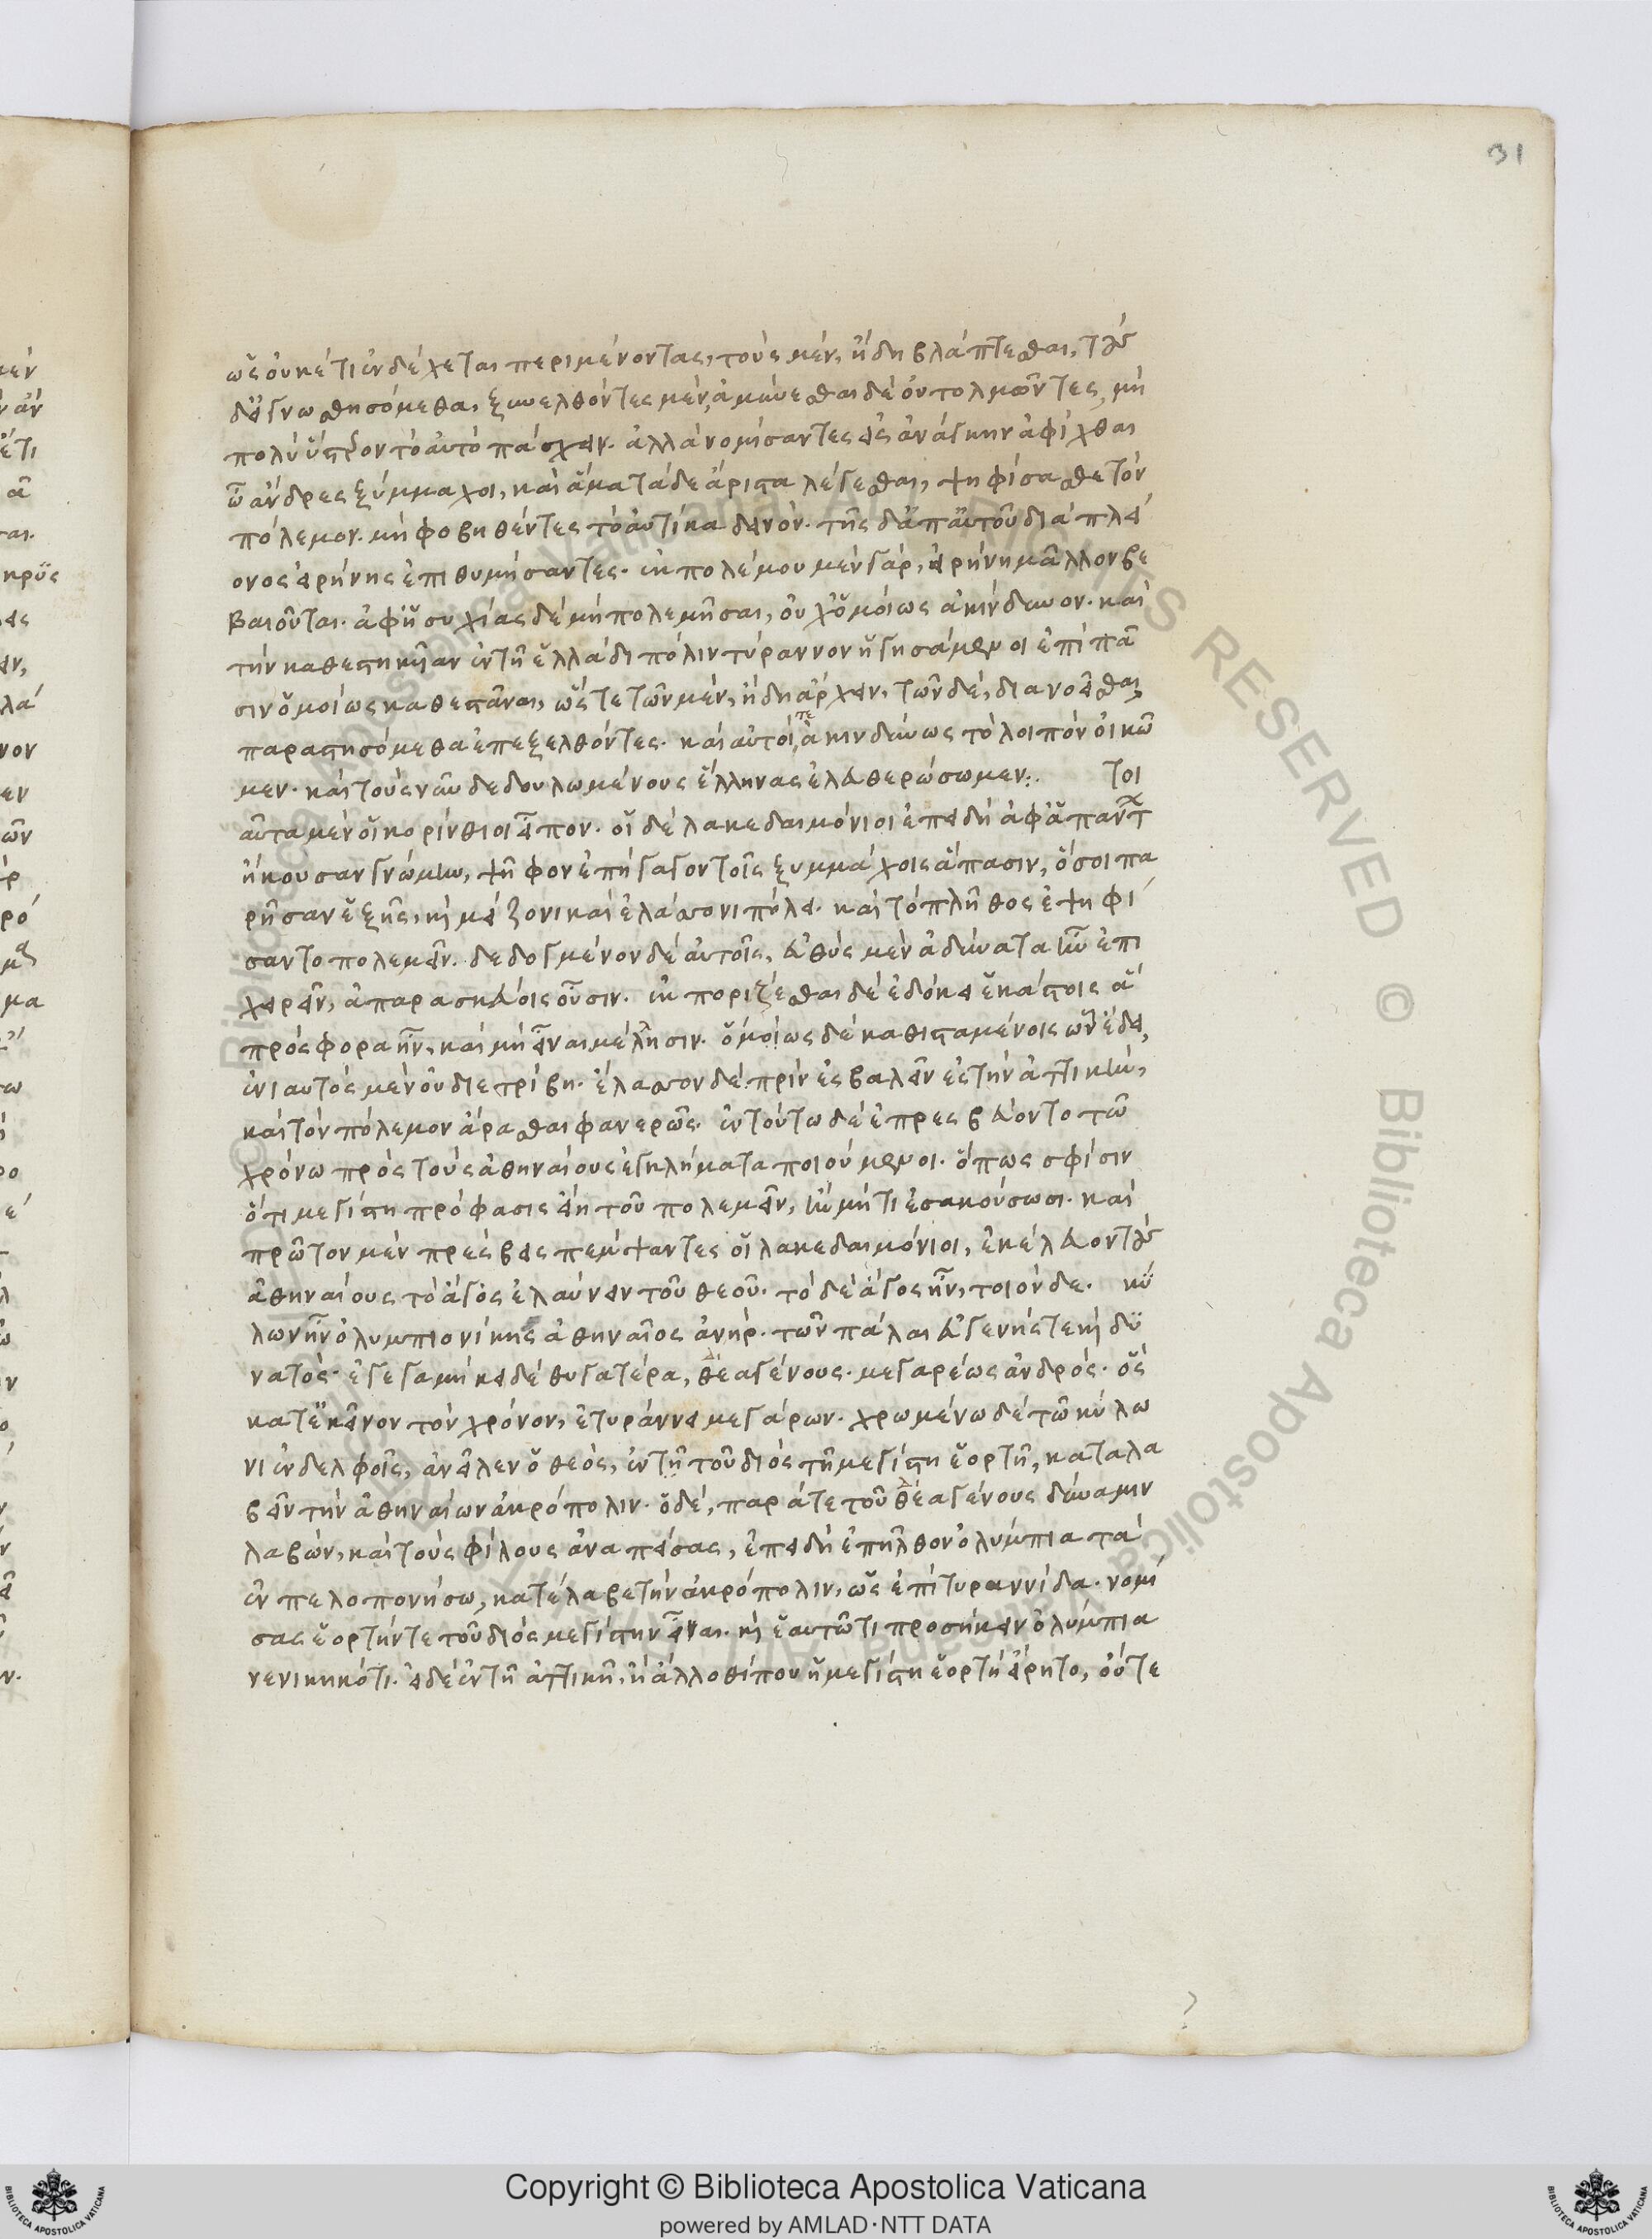 31
ὡς οὐκέτι ἐνδέχεται περιμένοντας, τοὺς μὲν, ἤδη βλάπτεσθαι, τοὺς
δ᾽ εἰ γνωσθησόμεθα, ξυνελθόντες μὲν, ἀμύνεσθαι δὲ οὐ τολμῶντες, μὴ
πολὺ ὕστερον τὸ αὐτὸ πάσχειν. ἀλλὰ νομίσαντες εἰς ἀνάγκην ἀφίχθαι
ὦ ἄνδρες ξύμμαχοι, καὶ ἅμα τάδε ἄριστα λέγεσθαι, ψηφίσασθε τὸν
πόλεμον. μὴ φοβηθέντες τὸ αὐτίκα δεινόν. τῆς δ᾽ ἀπ᾽ αὐτοῦ διὰ πλεί
ονος εἰρήνης ἐπιθυμήσαντες. ἐκ πολέμου μὲν γὰρ, εἰρήνη μᾶλλον βε
βαιοῦται. ἀφ᾽ ἡσυχίας δὲ μὴ πολεμῆσαι, οὐχ ὁμοίως ἀκίνδυνον. καὶ
τὴν καθεστηκυῖαν ἐν τῇ ἑλλάδι πόλιν τύραννον ἡγησάμενοι ἐπὶ πᾶ
σιν ὁμοίως καθεστάναι, ὥστε τῶν μὲν, ἤδη ἄρχειν, τῶν δὲ, διανοεῖσθαι,
παραστησόμεθα ἐπεξελθόντες. καὶ αὐτοί τε ἀκινδύνως τὸ λοιπὸν οἰκῶ
μεν. καὶ τοὺς νῦν δεδουλωμένους ἕλληνας ἐλευθερώσωμεν:. τοι
αῦτα μὲν οἱ κορίνθιοι εἶπον. οἱ δὲ λακεδαιμόνιοι ἐπειδὴ ἀφ᾽ ἁπάντων
ἤκουσαν γνώμην, ψῆφον ἐπήγαγον τοῖς ξυμμάχοις ἅπασιν, ὅσοι πα
ρῆσαν ἑξῆς, καὶ μείζονι καὶ ἐλάσσονι πόλει. καὶ τὸ πλῆθος ἐψηφί
σαντο πολεμεῖν. δεδογμένον δὲ αὐτοῖς, εὐθὺς μὲν ἀδύνατα ἦν ἐπι
χειρεῖν, ἀπαρασκεύοις οὖσιν. ἐκποριζέσθαι δὲ ἐδόκει ἑκάστοις ἃ
πρόσφορα ἦν, καὶ μὴ εἶναι μέλλησιν. ὁμοίως δὲ καθισταμένοις ὧν ἔδει,
ἐνιαυτὸς μὲν οὐ διετρίβη. ἔλασσον δὲ πρὶν ἐσβαλεῖν ἐς τὴν ἀττικὴν,
καὶ τὸν πόλεμον ἄρασθαι φανερῶς. ἐν τούτω δὲ ἐπρεσβεύοντο τῶ
χρόνω πρὸς τοὺς ἀθηναίους ἐγκλήματα ποιούμενοι. ὅπως σφίσιν
ὅτι μεγίστη πρόφασις εἴη τοῦ πολεμεῖν, ἢν μή τι ἐσακούσωσι. καὶ
πρῶτον μὲν πρέσβεις πέμψαντες οἱ λακεδαιμόνιοι, ἐκέλευον τοὺς
ἀθηναίους τὸ ἄγος ἐλαύνειν τοῦ θεοῦ. τὸ δὲ ἄγος ἦν, τοιόνδε. κύ
λων ἦν ὀλυμπιονίκης ἀθηναῖος ἀνήρ. τῶν πάλαι εὐγενής τε καὶ δυ
νατός. ἐγεγαμήκει δὲ θυγατέρα, θεαγένους. μεγαρέως ἀνδρός. ὃς
κατ᾽ ἐκεῖνον τὸν χρόνον, ἐτυράννει μεγάρων. χρωμένω δὲ τῶ κύλω
νι ἐν δελφοῖς, ἀνεῖλεν ὁ θεὸς, ἐν τῇ τοῦ διὸς τῇ μεγίστη ἑορτῇ, καταλα
βεῖν τὴν ἀθηναίων ἀκρόπολιν. ὁ δὲ, παρά τε τοῦ θεαγένους δύναμιν
λαβὼν, καὶ τοὺς φίλους ἀναπείσας, ἐπειδὴ ἐπῆλθον ὀλύμπια τὰ
ἐν πελοπονήσω, κατέλαβε τὴν ἀκρόπολιν, ὡς ἐπὶ τυραννίδα. νομί
σας ἑορτήν τε τοῦ διὸς μεγίστην εἶναι. καὶ ἑαυτῶ τι προσήκειν ὀλύμπια
νενικηκότι. εἰ δὲ ἐν τῇ ἀττικῇ, ἢ ἄλλοθί που ἡ μεγίστη ἑορτὴ εἴρητο, οὔτε
Copyright © Biblioteca Apostolica Vaticana
powered by AMLAD·NTT DATA